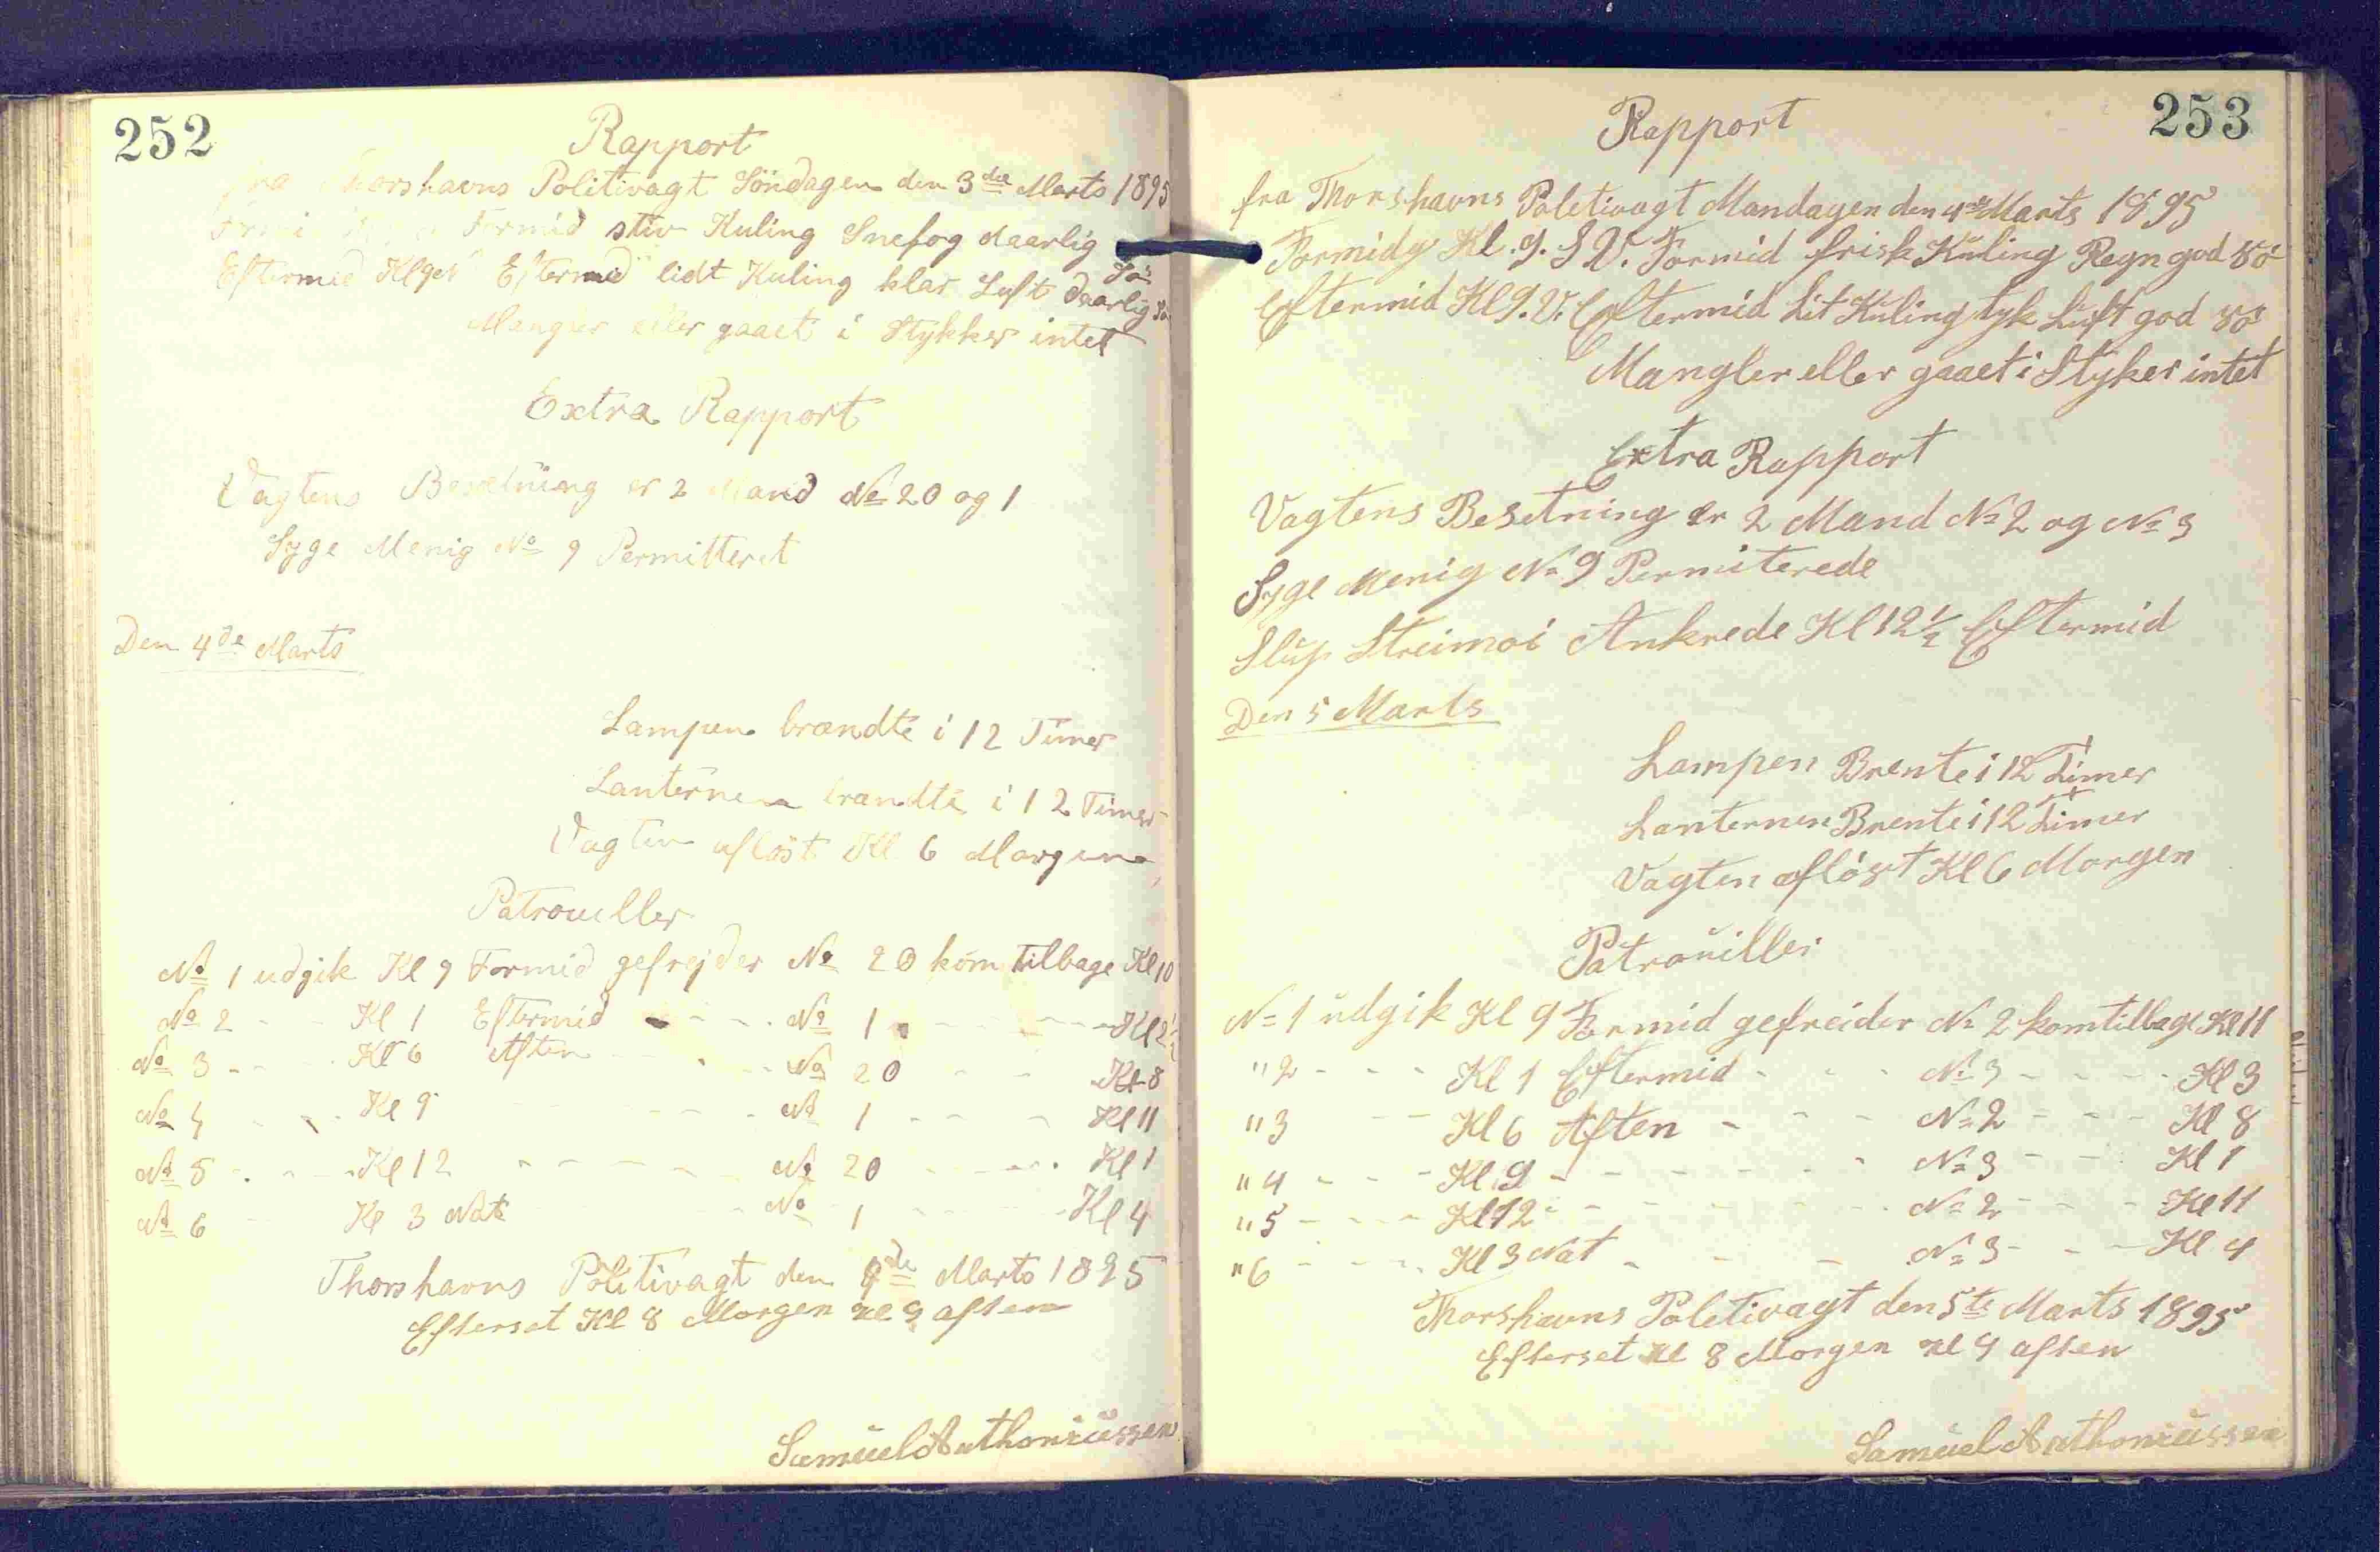 252
Rapport
fra Thorshavns Politivagt Söndagen den 3die Marts 1895
Formid stiv Kuling Snefog daarlig Sö
Eftermid Kl Eftermid lidt Kuling klar Luft daarlig Sö
Mangler eller gaaet i Stykker intet
Extra Rapport
Vagtens Besætning er 2 Mand No 20 og 1
Syge Menig No 9 Permitteret
Den 4de Marts
Lampen brændte i 12 Timer
Lanternen brændte i 12 Timer
Vagten aflöst Kl 6 Morgen
Patrouiller
No 1 udgik Kl 9 Formid gefrejder No 20 kom tilbage Kl 10
No 2 - - Kl 1 Eftermid - - - No 1 - - - Kl 2½
No 3 - - - Kl 6 Aften - - - No 20 - - Kl 8
No 4 - - Kl 9 - - - No 1 - - - Kl 11
No 5 - - - Kl 12 - - - - No 20 - - - Kl 1
No 6 - Kl 3 Nat - - No 1 - - - Kl 4
Thorshavns Politivagt den 4de Marts 1895
Efterset Kl 8 Morgen Kl 9 aften
Samuel Anthoniussen
253
Rapport
fra Thorshavns Poletivagt Mandagen den 4de Marts 1895
Formidg Kl. 9. S V. Formid frisk Kuling Regn god Sö
Eftermid Kl 9. V. Eftermid Lit Kuling tyk Luft god Sö
Mangler eller gaaet i Styker intet
Extra Rapport
Vagtens Besetning er 2 Mand No 2 og No 3
Syge Menig No 9 Permiterede
Slup Streimoi Ankrede Kl 12½ Eftermid
Den 5 Marts
Lampen Brente i 12 Timer
Lanternen Brente i 12 Timer
Vagten aflöst Kl 6 Morgen
Patrouiller
No 1 udgik Kl 9 Formid gefreider No 2 kom tilbage Kl 11
"2 - - - Kl 1 Eftermid - - - No 3 - - - - Kl 3
"3 - - Kl 6 Aften - - - No 2 - - - Kl 8
"4 - - - Kl 9 - - - - - No 3 - - - Kl 1
"5 - - - - Kl 12 - - - - - No 2 - - - Kl 11
"6 - - - - Kl 3 Nat - - - No 3 - - - Kl 4
Thorshavns Poletivagt den 5te Marts 1895
Efterset Kl 8 Morgen Kl 9 aften
Samuel Anthoniussen